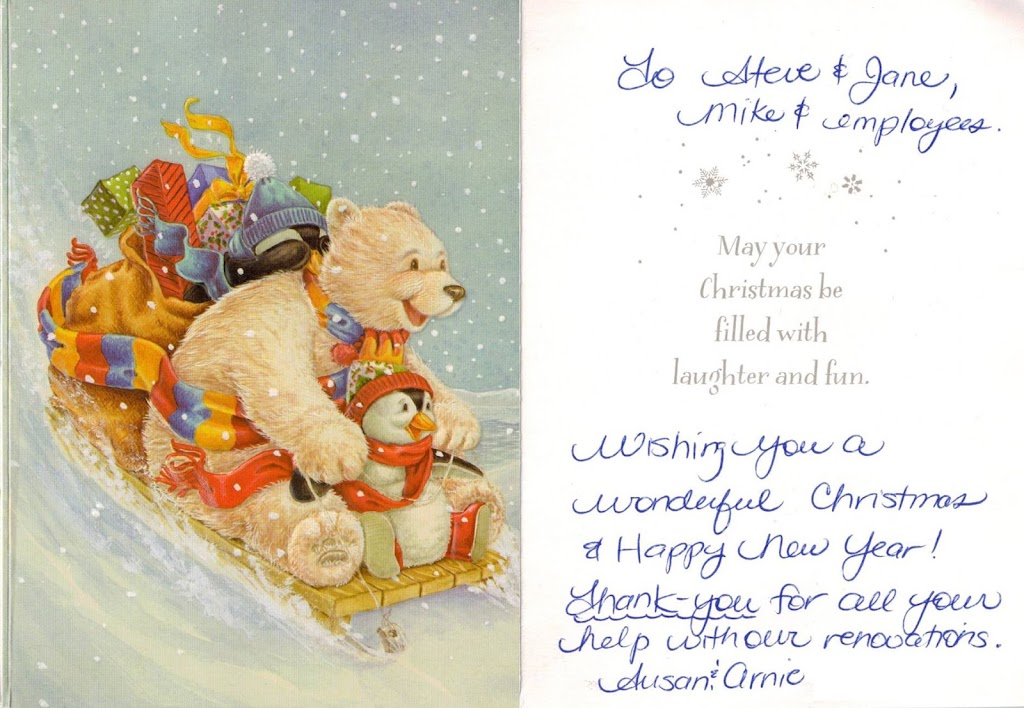 To Steve & Jane,
Mike & employees.
May your
Christmas be
filled with
laughter and fun.
Wishing you a
wonderful Christmas
& Happy New Year!
Thank-you for all your
help with our renovations.
Susan & Arnie